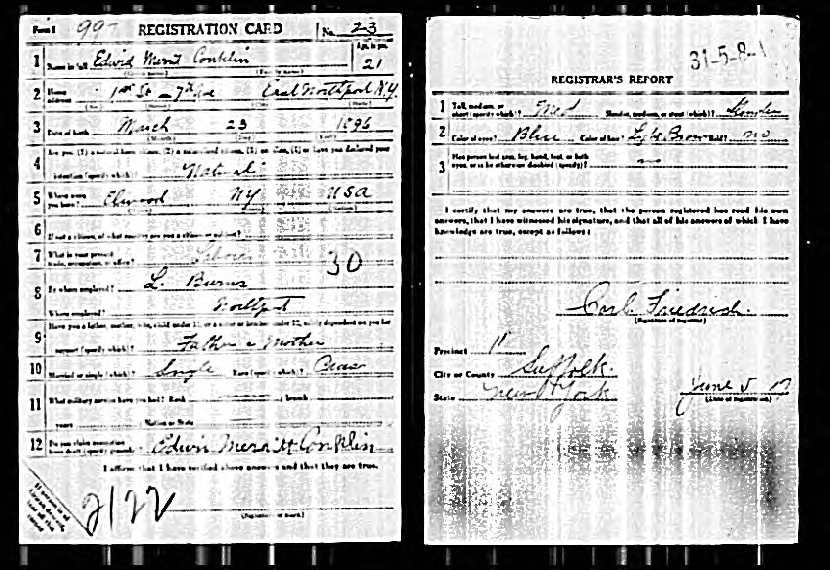 Form 1 997 REGISTRATION CARD No. 23
Age, in yrs.
1 Name in full Edwid Merrit Conklin 21
(Given name) (Family name)
2 Home address 1st St - 7th Ave East Northport N.Y.
(No.) (Street) (City) (State)
3 Date of birth March 23 1896
(Month) (Day) (Year)
4 Are you (1) a natural born citizen, (2) a naturalized citizen, (3) an alien, (4) or have you declared your
intention (specify which)? Natural
5 Where were you born? Elwood NY USA
6 If not a citizen, of what country are you a citizen or subject?
7 What is your present trade, occupation, or office? Laborer 30
8 By whom employed? L. Burns
Where employed? Northport
9 Have you a father, mother, wife, child under 12, or a sister or brother under 12, solely dependent on you for
support (specify which)? Father & Mother
10 Married or single (which)? Single Race (specify which)? Caucas
11 What military service have you had? Rank branch
years Nation or State
12 Do you claim exemption from draft (specify grounds)? Edwin Merritt Conklin
I affirm that I have verified above answers and that they are true.
2122
(Signature or mark)
31-5-8-A
REGISTRAR'S REPORT
1 Tall, medium, or short (specify which)? Med Slender, medium, or stout (which)? Slender
2 Color of eyes? Blue Color of hair? Light Brown Bald? no
3 Has person lost arm, leg, hand, foot, or both
eyes, or is he otherwise disabled (specify)? no
I certify that my answers are true, that the person registered has read his own
answers, that I have witnessed his signature, and that all of his answers of which I have
knowledge are true, except as follows:
Carl Friedrich
(Signature of registrar)
Precinct 11
City or County Suffolk
State New York June 5 17
(Date of registration)